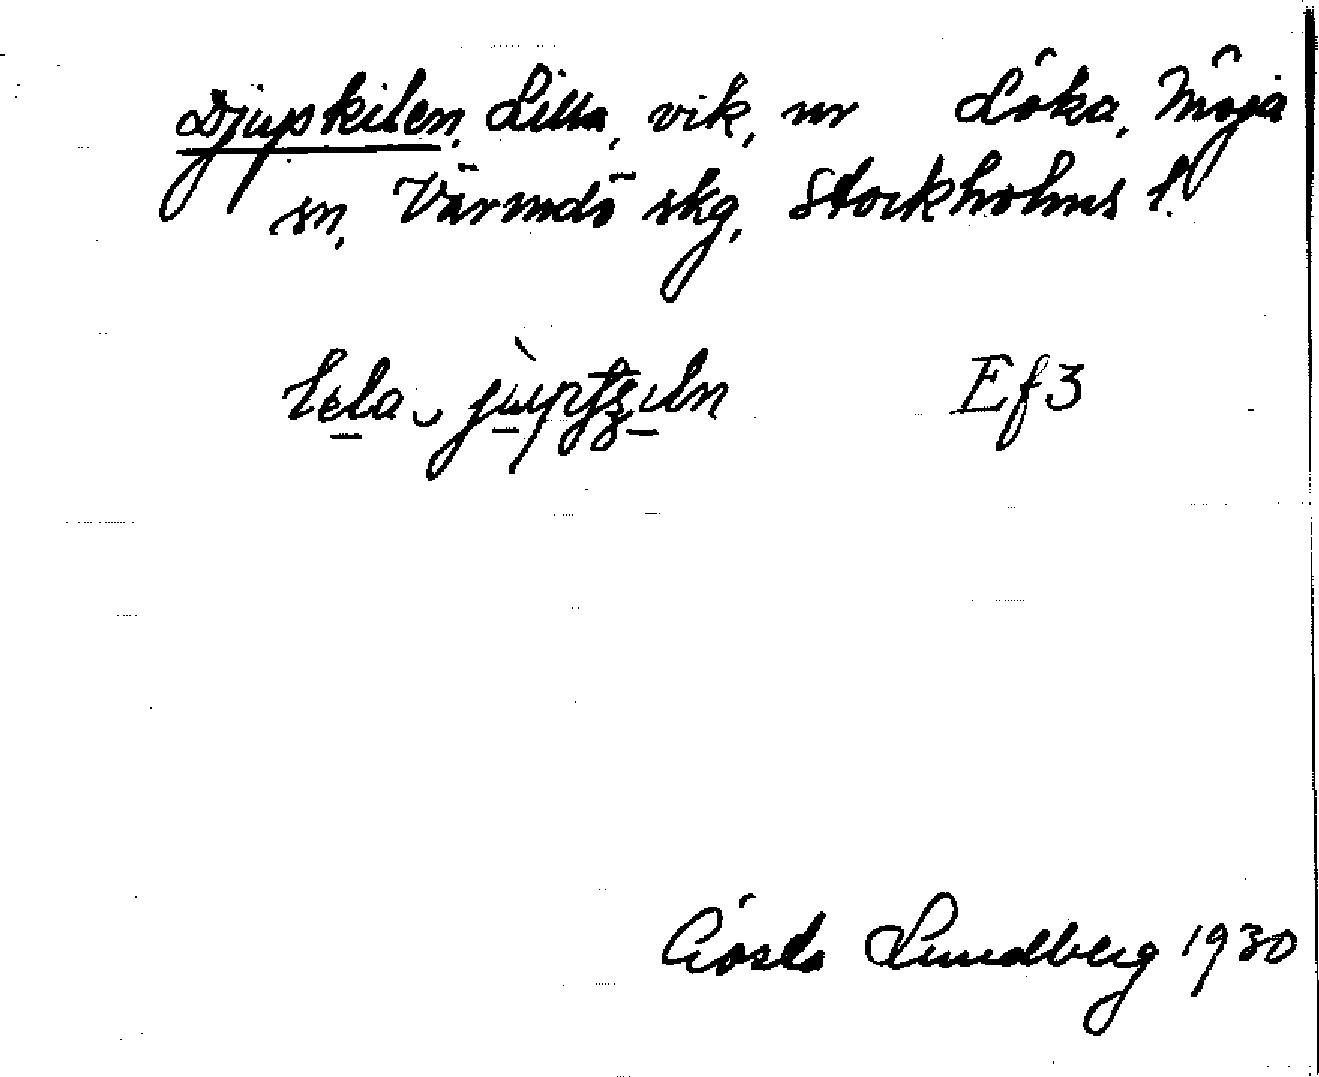 Djupkilen, Lilla, vik, nv Löka, Möja
sn, Värmdö skg, Stockholms l.
Ef3
Gösta Lundberg 1930